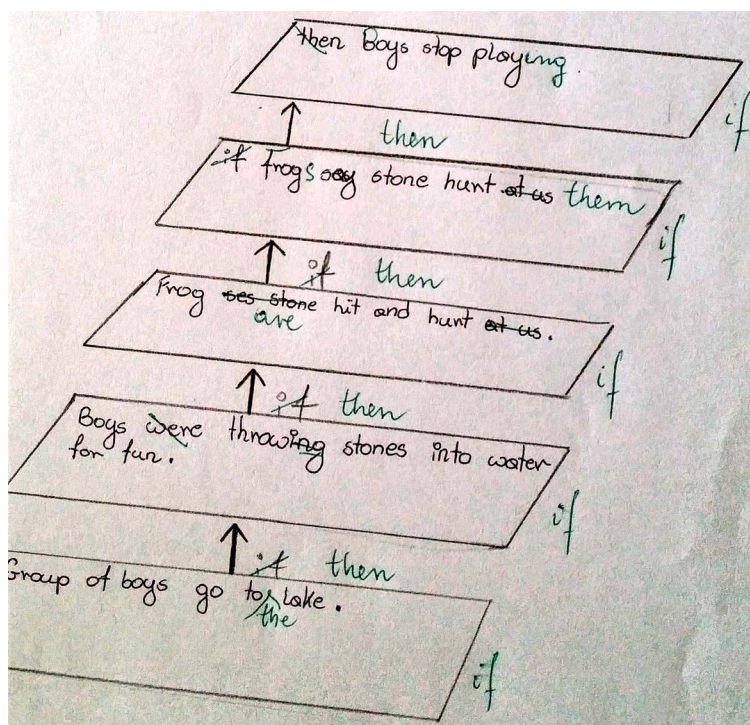 then Boys stop playing.
if
then
if Frogs say stone hunt at us them
if
if then
Frog ses stone hit and hunt at us.
are
if
if then
Boys were throwing stones into water
for fun.
if
if then
Group of boys go to lake.
the
if